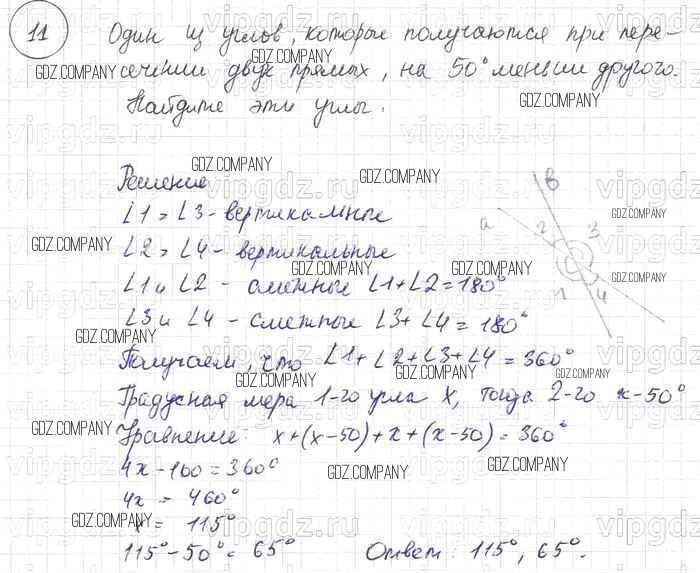 11 Один из углов, которые получаются при пере-
сечении двух прямых, на 50° меньше другого.
Найдите эти углы.
Решение
∠1 = ∠3 - вертикальные
∠2 = ∠4 - вертикальные
∠1 и ∠2 - смежные ∠1+∠2=180°
∠3 и ∠4 - смежные ∠3+∠4=180°
Получаем, что ∠1+∠2+∠3+∠4=360°
Градусная мера 1-го угла x, тогда 2-го x-50°
Уравнение: x+(x-50)+x+(x-50)=360°
4x-100=360°
4x = 460°
x = 115°
115°-50°=65° Ответ: 115°, 65°.
a
b
2
3
1
4
GDZ.COMPANY
vipgdz.ru